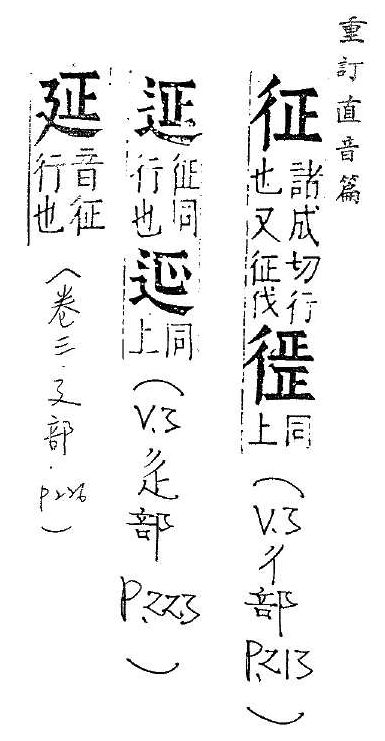 重訂直音篇
征 諸成切行
也又征伐
徰 同
上
(V.3 彳部 P.213)
征同
行也
同
上
(V.3 辵部 P.223)
延 音征
行也
(卷三·廴部·P226)